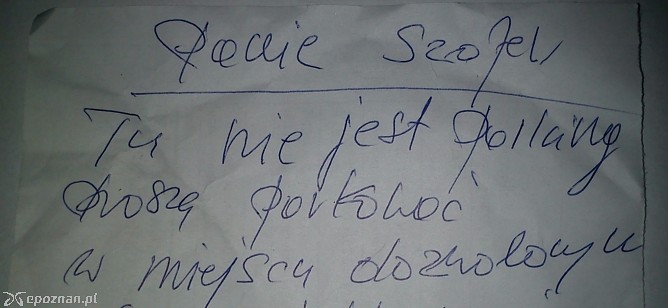 Panie Szofer
Tu nie jest parking
proszę parkować
w miejscu dozwolonym
epoznan.pl